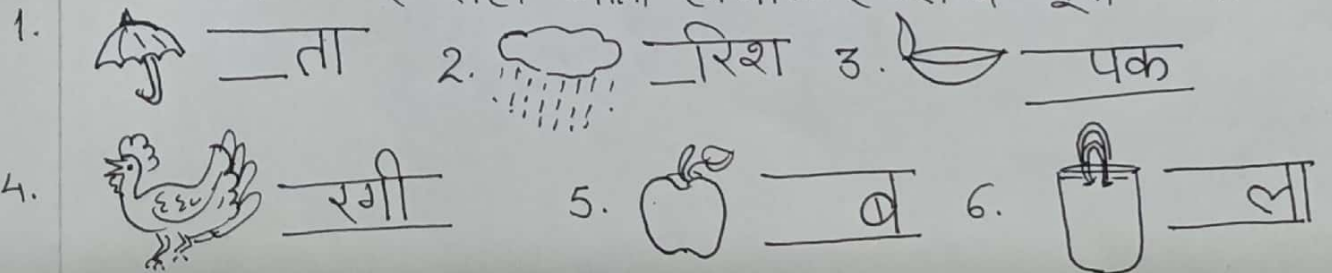 1. __ता 2. __रिश 3. __पक
4. __रगी 5. __ब 6. __ला